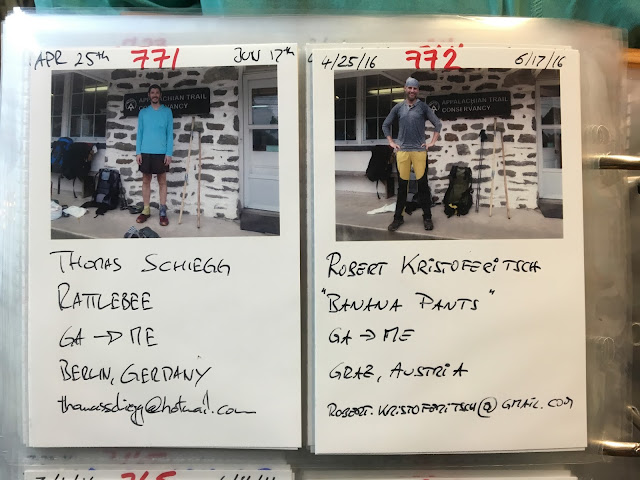 APR 25th 771 JUN 17th
APPALACHIAN TRAIL
CONSERVANCY
THOMAS SCHIEGG
RATTLEBEE
GA → ME
BERLIN, GERMANY
4/25/16 772 6/17/16
APPALACHIAN TRAIL
CONSERVANCY
ROBERT KRISTOFERITSCH
"BANANA PANTS"
GA → ME
GRAZ, AUSTRIA
ROBERT.KRISTOFERITSCH@GMAIL.COM